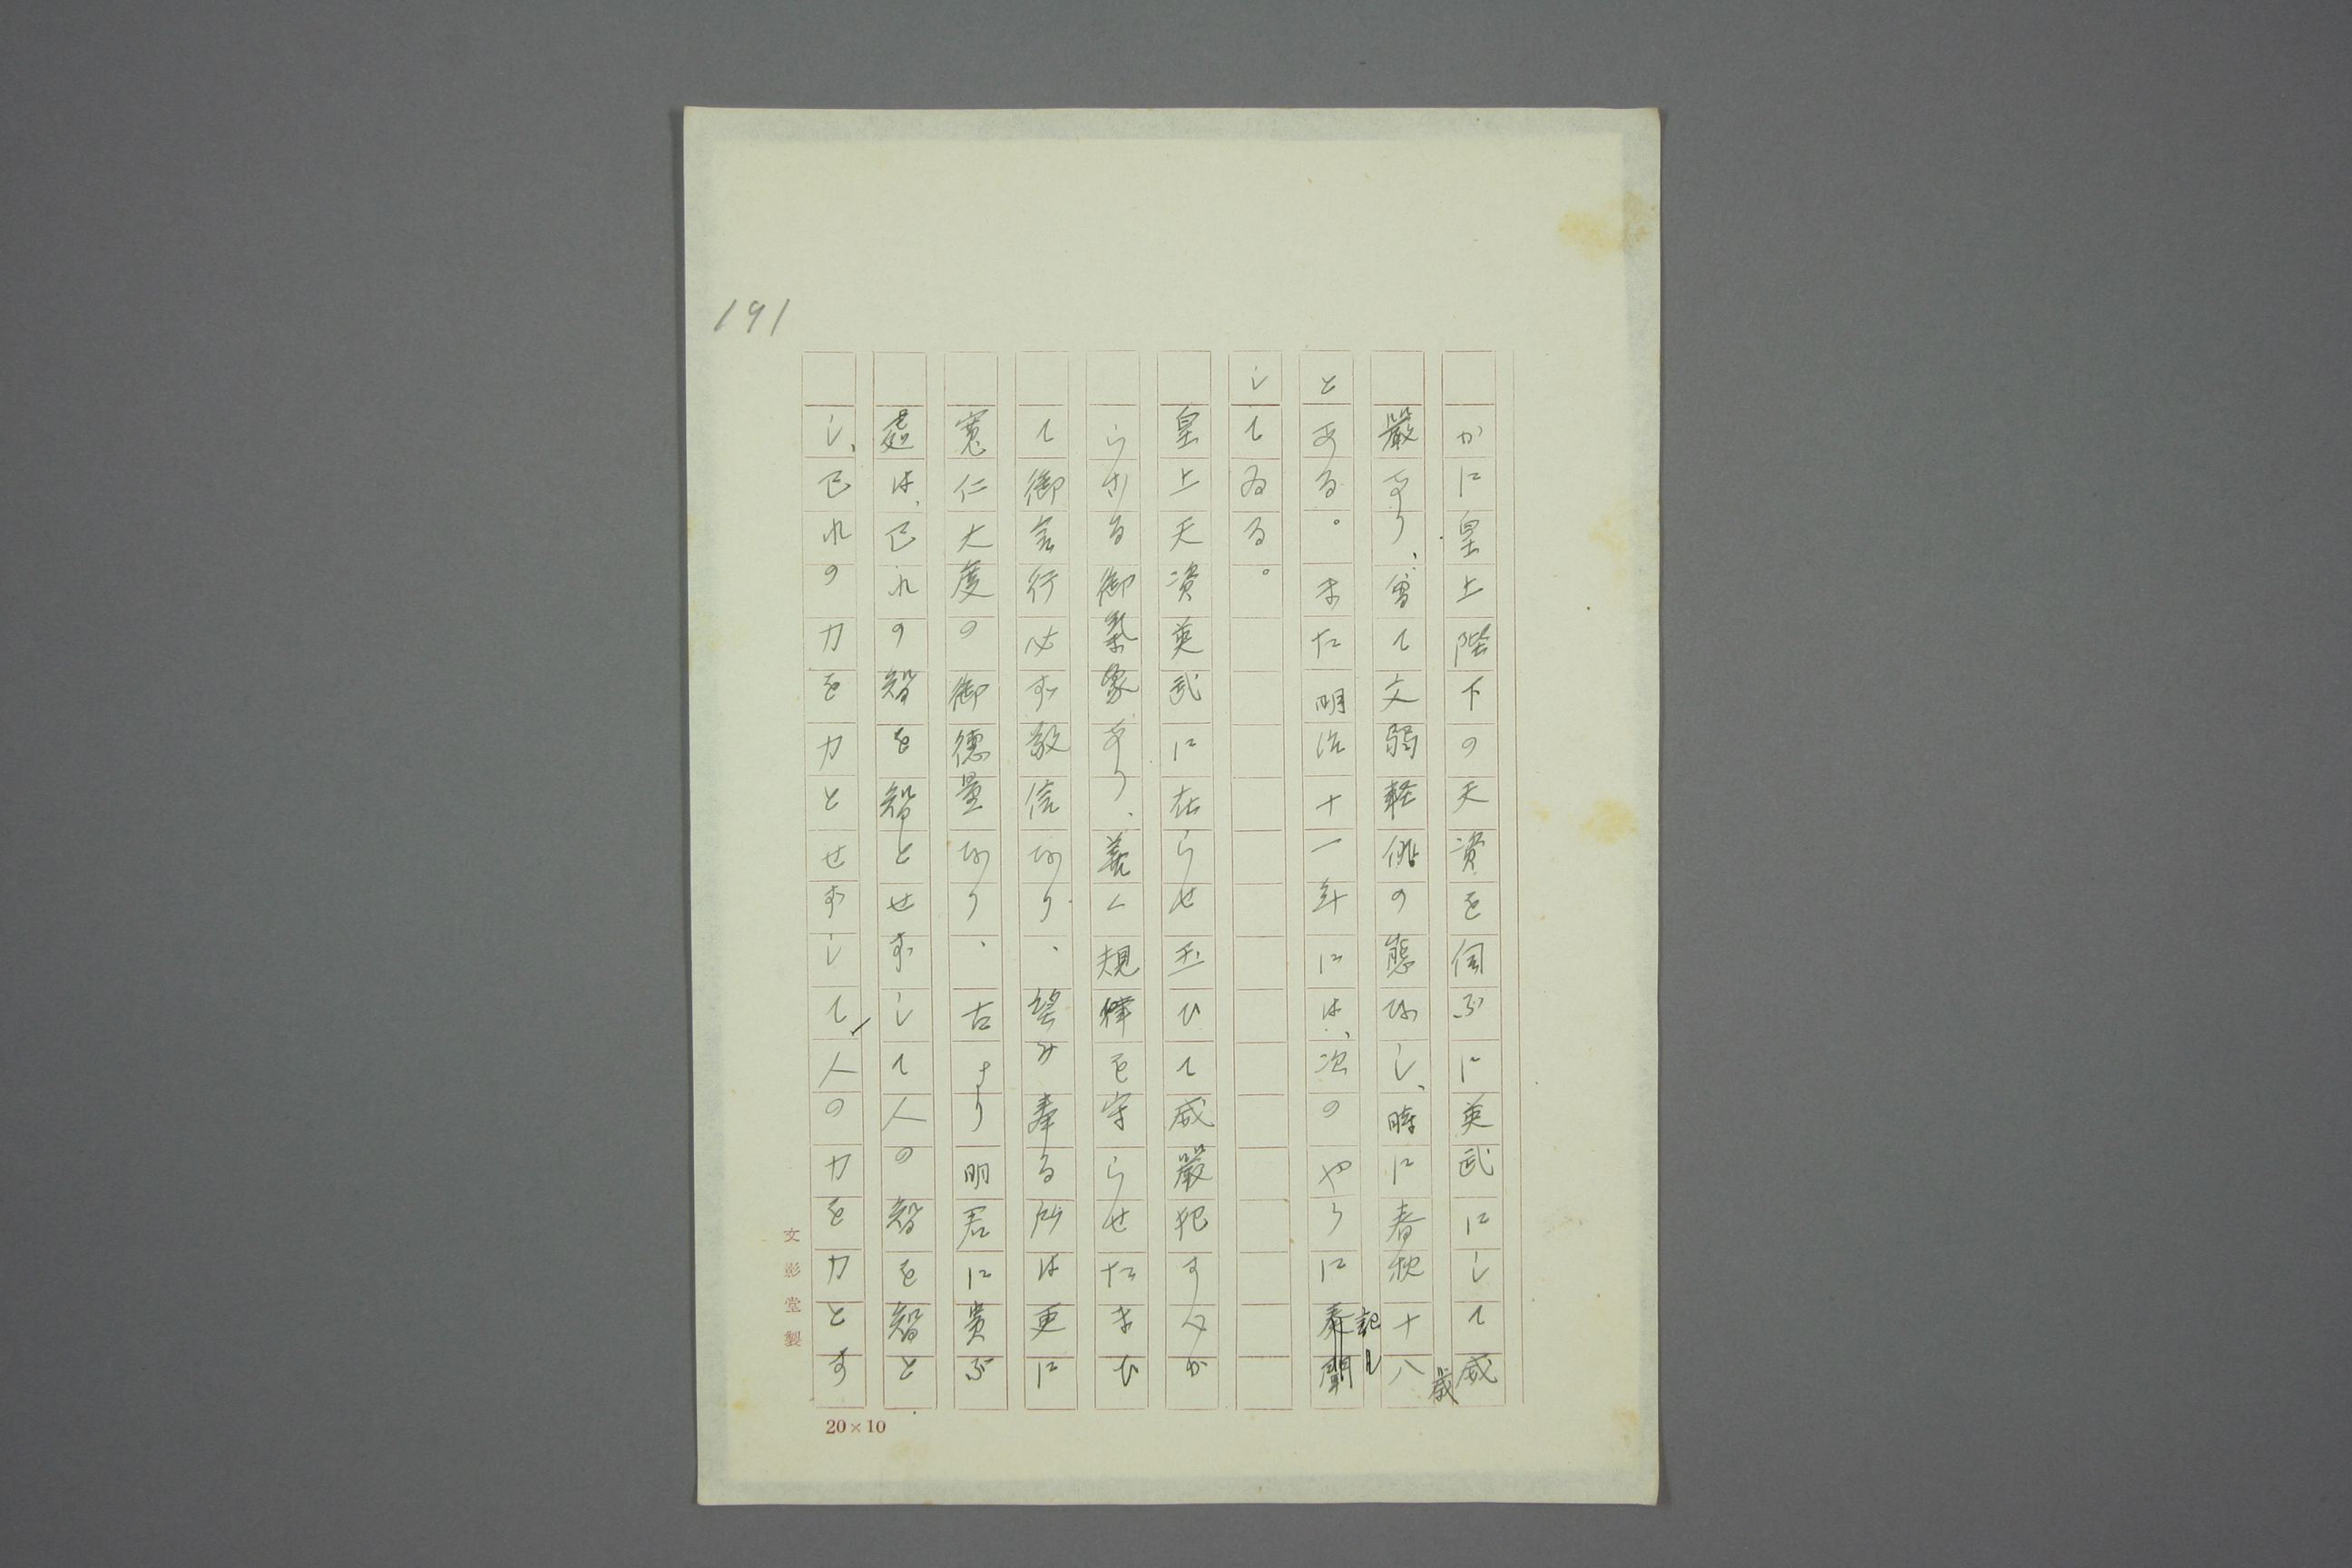 191
かに皇上陛下の天資を伺ふに英武にして威
嚴あり、曽て文弱軽佻の態なし、時に春秋十八歳
とある。また明治十一年には、次のやうに奏聞記し
してゐる。
皇上天資英武に在らせ玉ひて威嚴犯すべか
らざる御氣象あり、善く規律を守らせたまひ
て御言行必ず敬信なり、望み奉る所は更に
寛仁大度の御德量なり、古より明君に貴ぶ
處は、己れの智を智とせずして人の智を智と
し、己れの力を力とせずして、人の力を力とす
文影堂製
20×10